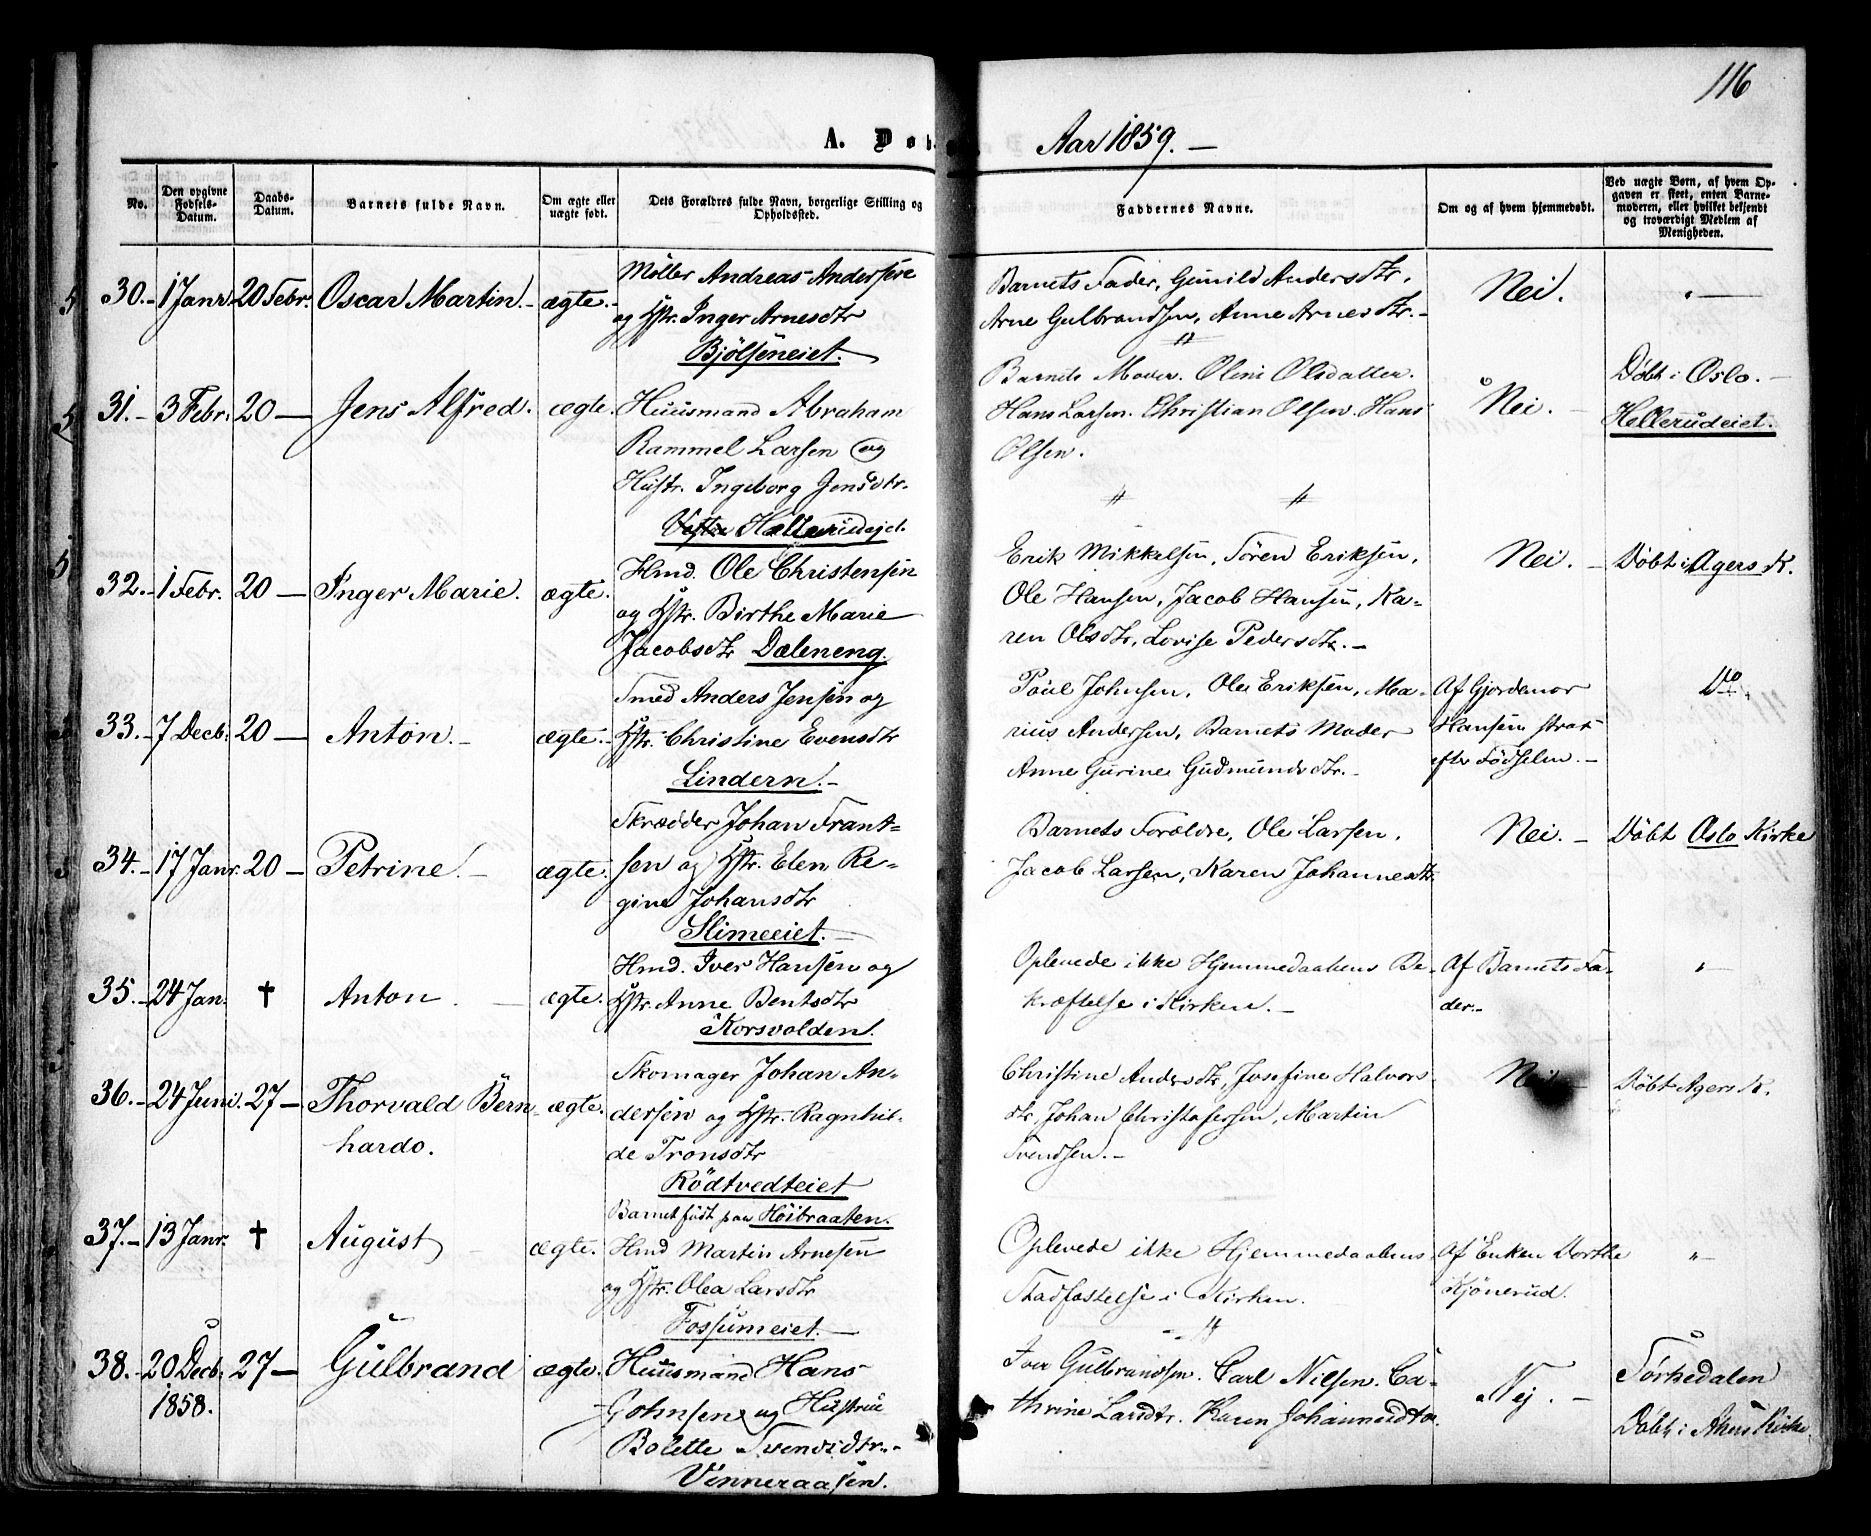 116
A. Døb Aar 1859. —
No.
Den opgivne Fødsels-Datum.
Daabs-Datum.
Barnets fulde Navn.
Om ægte eller uægte født.
Dets Forældres fulde Navn, borgerlige Stilling og Opholdssted.
Faddernes Navne.
Om og af hvem hjemmedøbt.
Ved uægte Børn, af hvem Opgaven er skeet, enten Barnemoderen, eller hvilket bekjendt og troværdigt Medlem af Menigheden.
30.- 1 Janr. 20 Febr. Oscar Martin. - ægte. -
Møller Andreas Andersens
og Hstr. Inger Arnesdtr
Bjölseneiet.
Barnets Fader, Gunild Andersdtr.
Arne Gulbrandsen, Anne Arnesdtr. -
Nei.
"—
31.- 3 Febr. 20 — Jens Alfred. ægte.
Huusmand Abraham
Rammel Larsen og
Hustr. Ingeborg Jensdtr.
Hallerudejet.
Barnets Moder. Oline Olsdatter.
Hans Larsen. Christian Olsen. Hans
Olsen.
Nei. -
Døbt i Oslo. -
Hellerudeiet.
32.- 1 Febr. 20 — Inger Marie. ægte.
Hmd. Ole Christensen
og Hstr. Birthe Marie
Jacobsdtr Dæleneng.
Erik Mikkelsen, Sören Eriksen,
Ole Hansen, Jacob Hansen, Ka-
ren Olsdtr, Lovise Pedersdtr. -
Nei. -
Døbt i Agers K.
33.- 7 Decb. 20 — Anton. - ægte. -
Smed Anders Jensen og
Hstr. Christine Evensdtr
Lindern. -
Poul Johnsen, Ole Eriksen, Ma-
rius Andersen, Barnets Moder
Anne Gurine Gudmundsdtr. -
Af Gjordemor
Hansen strax
efter Födselen. -
Do
34.- 17 Janr. 20 — Petrine. - ægte.
Skrædder Johan Frant-
sen og Hstr. Elen Re-
gine Johansdtr
Slimeeiet. -
Barnets Forældre, Ole Larsen,
Jacob Larsen, Karen Johannesdtr.
Nei. -
Døbt Oslo Kirke
35.- 24 Jan. † Anton. — ægte.
Hmd. Iver Hansen og
Hstr. Anne Bentsdtr
Korsvolden.
Oplevede ikke Hjemmedaabens Be-
kræftelse i Kirken. -
Af Barnets Fa-
der. -
"
36.- 24 Juni. 27 — Thorvald Bern-
hardo.
ægte.
Skomager Johan An-
dersen og Hstr. Ragnhil-
de Tronsdtr
Rödtvedteiet
Christine Andersdtr, Josefine Halvors-
dtr. Johan Christofersen, Martin
Svendsen. -
Nei -
Døbt Agers K.
37.- 13 Janr. † August - ægte.
Barnet födt paa Höibraaten.
Hmd Martin Arnesen
og Hstr. Olea Larsdtr
Fossumeiet. -
Oplevede ikke Hjemmedaabens
Stadfæstelse i Kirken.
Af Enken Dorthe
Kjönerud.
"
38.- 20 Decb. 27 — Gulbrand ægte.
1858.
Huusmand Hans
Johnsen og Hustrue
Bolette Svendsdtr. -
Vinneraasen.
Iver Gulbrandsen. Carl Nilsen. Ca-
thrine Larsdtr. Karen Johannesdtr.
Nej. -
Sørkedalen
Døbt i Akers Kirke.